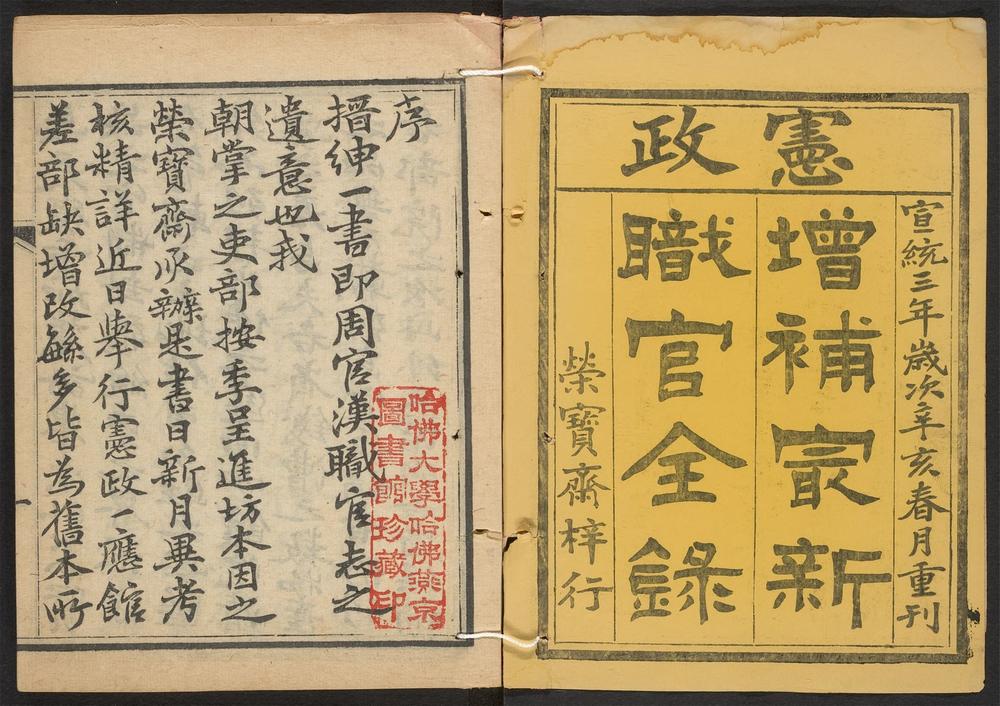 憲政
宣統三年歲次辛亥春月重刊
增補最新
職官全錄
榮寶齋梓行
序
搢紳一書即周官漢職官志之
遺意也我
朝掌之吏部按季呈進坊本因之
榮寶齋承辦是書日新月異考
核精詳近日舉行憲政一應館
差部缺增改緐多皆為舊本所
哈佛大學哈佛燕京
圖書館珍藏印